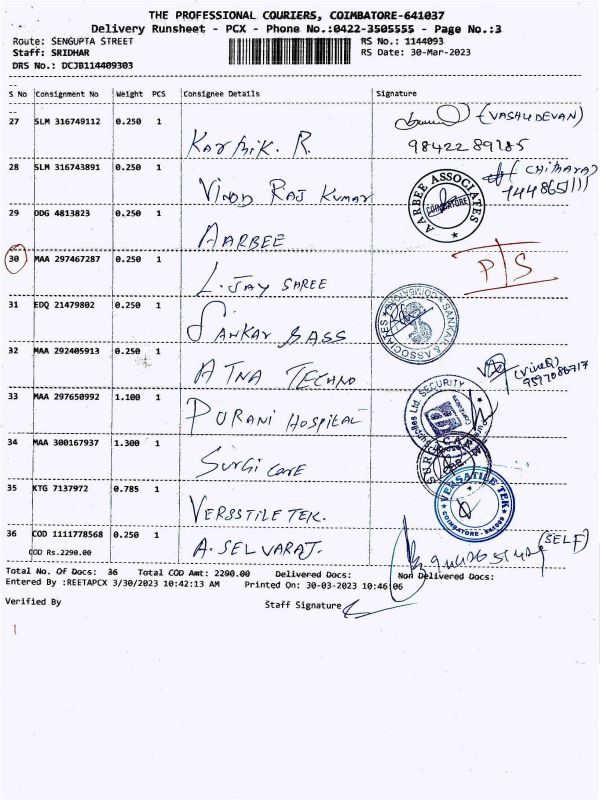 THE PROFESSIONAL COURIERS, COIMBATORE-641037
Delivery Runsheet - PCX - Phone No.:0422-3505555 - Page No.:3
Route: SENGUPTA STREET
RS No.: 1144093
Staff: SRIDHAR
RS Date: 30-Mar-2023
DRS No.: DCJB114409303
S No Consignment No Weight PCS Consignee Details Signature
27 SLM 316749112 0.250 1 Karthik. R. (VASHUDEVAN)
9842289185
28 SLM 316743891 0.250 1 VINOD RAJ KUMAR
AARBEE ASSOCIATES
COIMBATORE
29 DDG 4813823 0.250 1 AARBEE
30 MAA 297467287 0.250 1 L. JAY SHREE P/S
31 EDQ 21479802 0.250 1 SANKAR & ASS
SANKAR & ASSOCIATES
32 MAA 292405913 0.250 1 ATNA TECHNO
33 MAA 297650992 1.100 1 PURANI HOSPITAL
SECURITY
34 MAA 300167937 1.300 1 Surgi care
SURGICARE
35 KTG 7137972 0.785 1 VERSSTILE TEK.
VERSATILE TEK
COIMBATORE
36 COD 1111778568 0.250 1 A. SELVARAJ. (SELF)
COD Rs.2290.00
Total No. Of Docs: 36 Total COD Amt: 2290.00 Delivered Docs: Non Delivered Docs:
Entered By :REETAPCX 3/30/2023 10:42:13 AM Printed On: 30-03-2023 10:46:06
Verified By Staff Signature